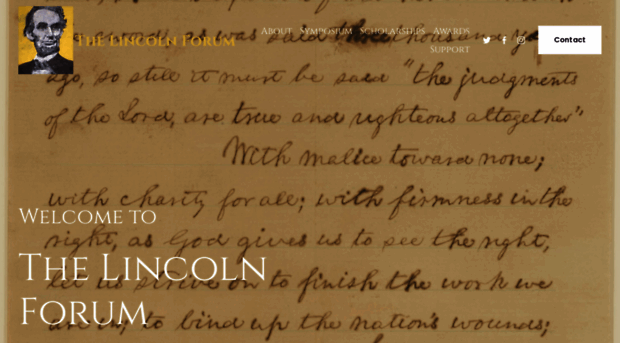 The Lincoln Forum
About Symposium Scholarships Awards
Support
Contact
ago, so still it must be said "the judgments
of the Lord, are true and righteous altogether"
With malice toward none;
with charity for all; with firmness in the
right, as God gives us to see the right,
let us strive on to finish the work we
are in; to bind up the nation's wounds;
Welcome to
The Lincoln
Forum